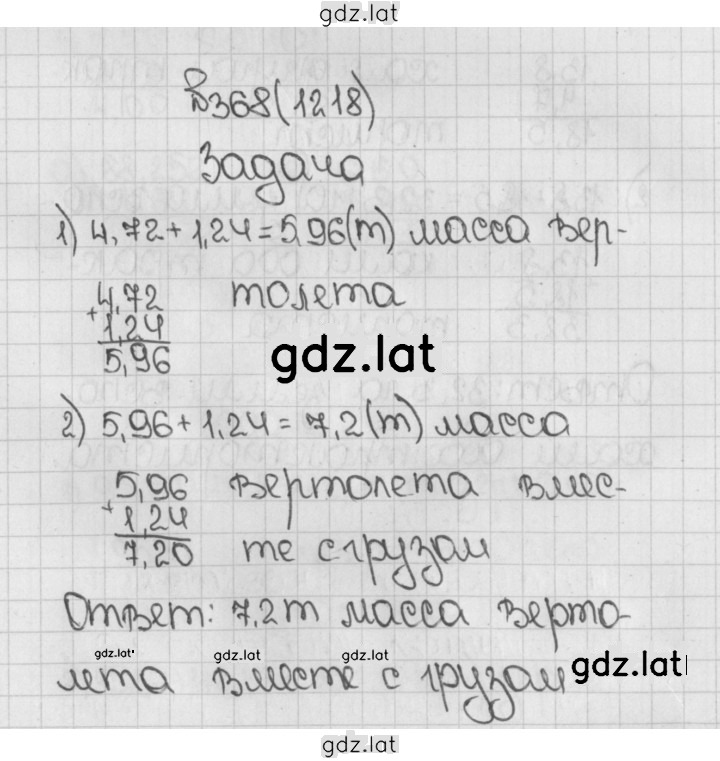 gdz.lat
№368(1218)
Задача
1) 4,72+1,24=5,96(т) масса вер-
толета
4,72
+1,24
5,96
gdz.lat
2) 5,96+1,24=7,2(т) масса
вертолета вмес-
те с грузом
5,96
+1,24
7,20
Ответ: 7,2т масса верто-
лета вместе с грузом
gdz.lat
gdz.lat
gdz.lat
gdz.lat
gdz.lat